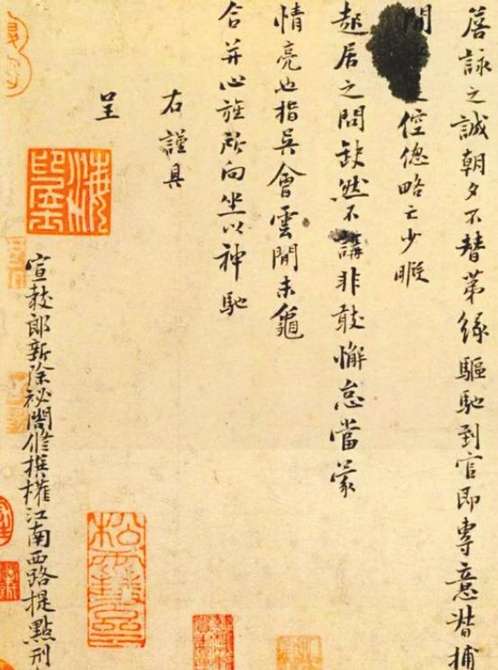 詹詠之誠朝夕不替第緣驅馳到官即專意督捕
間倥傯略亡少暇
起居之問缺然不講非敢懈怠當蒙
情亮也指吳會雲間未龜
合并心旌所向坐以神馳
右謹具
呈
宣教郎新除祕閣修撰權江南西路提點刑